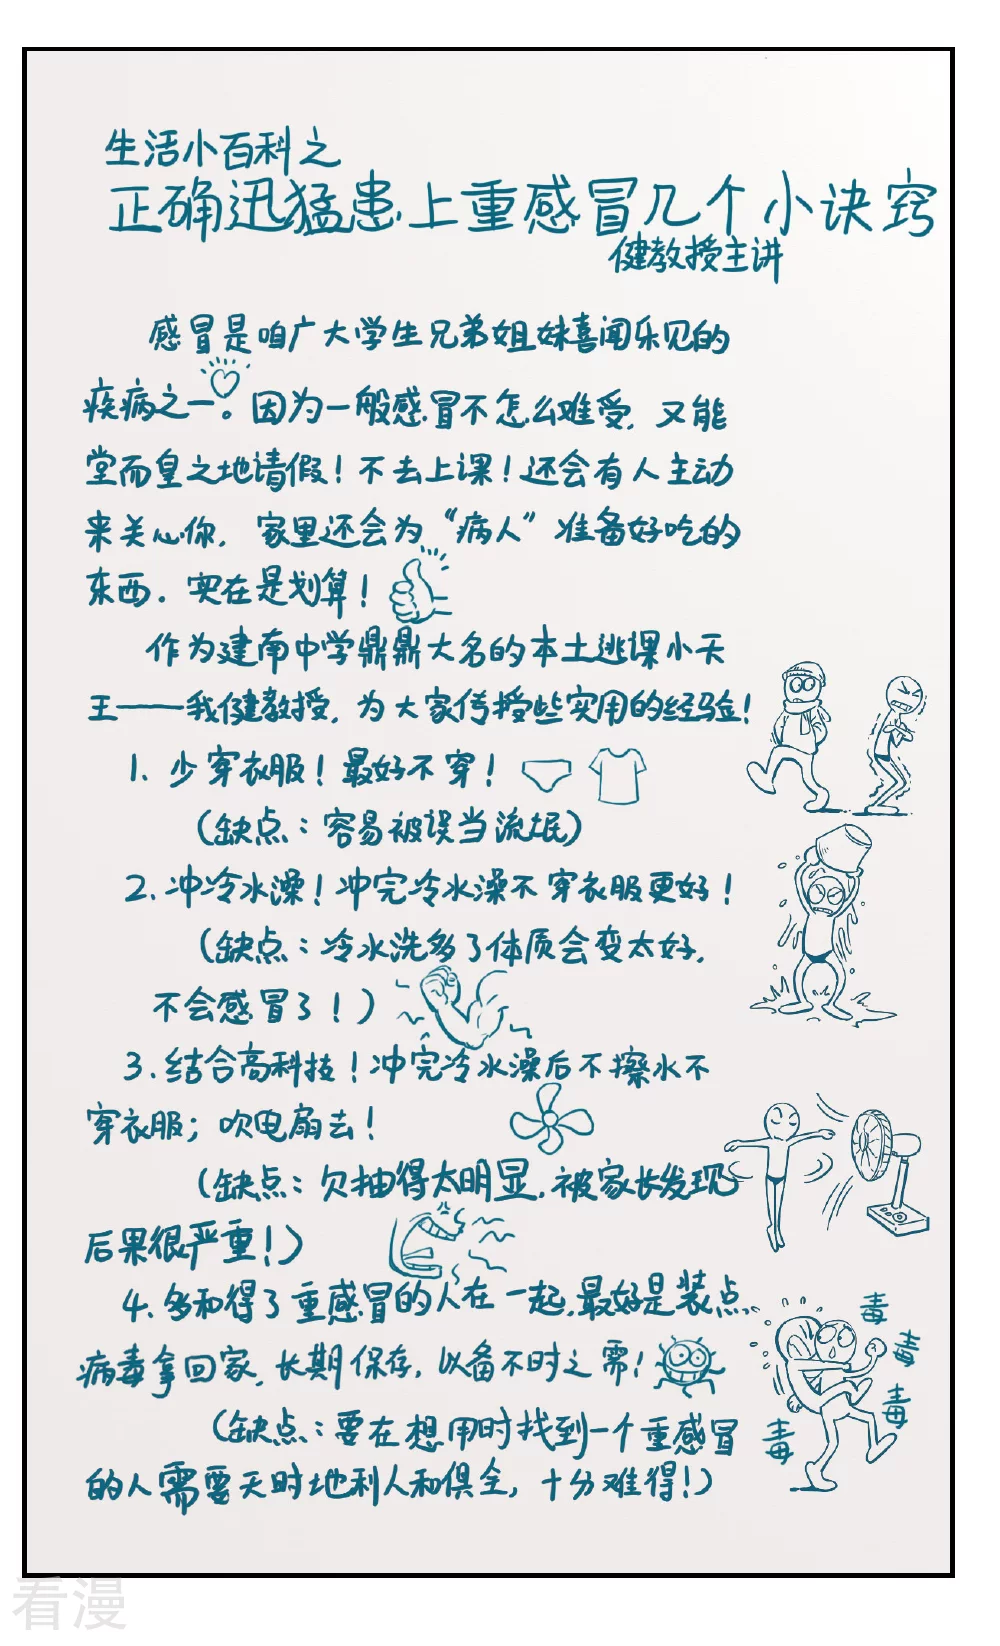 生活小百科之
正确迅猛患上重感冒几个小诀窍
健教授主讲
感冒是咱广大学生兄弟姐妹喜闻乐见的
疾病之一。因为一般感冒不怎么难受，又能
堂而皇之地请假！不去上课！还会有人主动
来关心你，家里还会为“病人”准备好吃的
东西．实在是划算！
作为建南中学鼎鼎大名的本土逃课小天
王——我健教授，为大家传授些实用的经验！
1．少穿衣服！最好不穿！
（缺点：容易被误当流氓）
2．冲冷水澡！冲完冷水澡不穿衣服更好！
（缺点：冷水洗多了体质会变太好，
不会感冒了！）
3．结合高科技！冲完冷水澡后不擦水不
穿衣服；吹电扇去！
（缺点：欠抽得太明显，被家长发现
后果很严重！）
4．多和得了重感冒的人在一起，最好是装点
病毒拿回家，长期保存，以备不时之需！
毒
毒
毒
毒
（缺点：要在想用时找到一个重感冒
的人需要天时地利人和俱全，十分难得！）
看漫